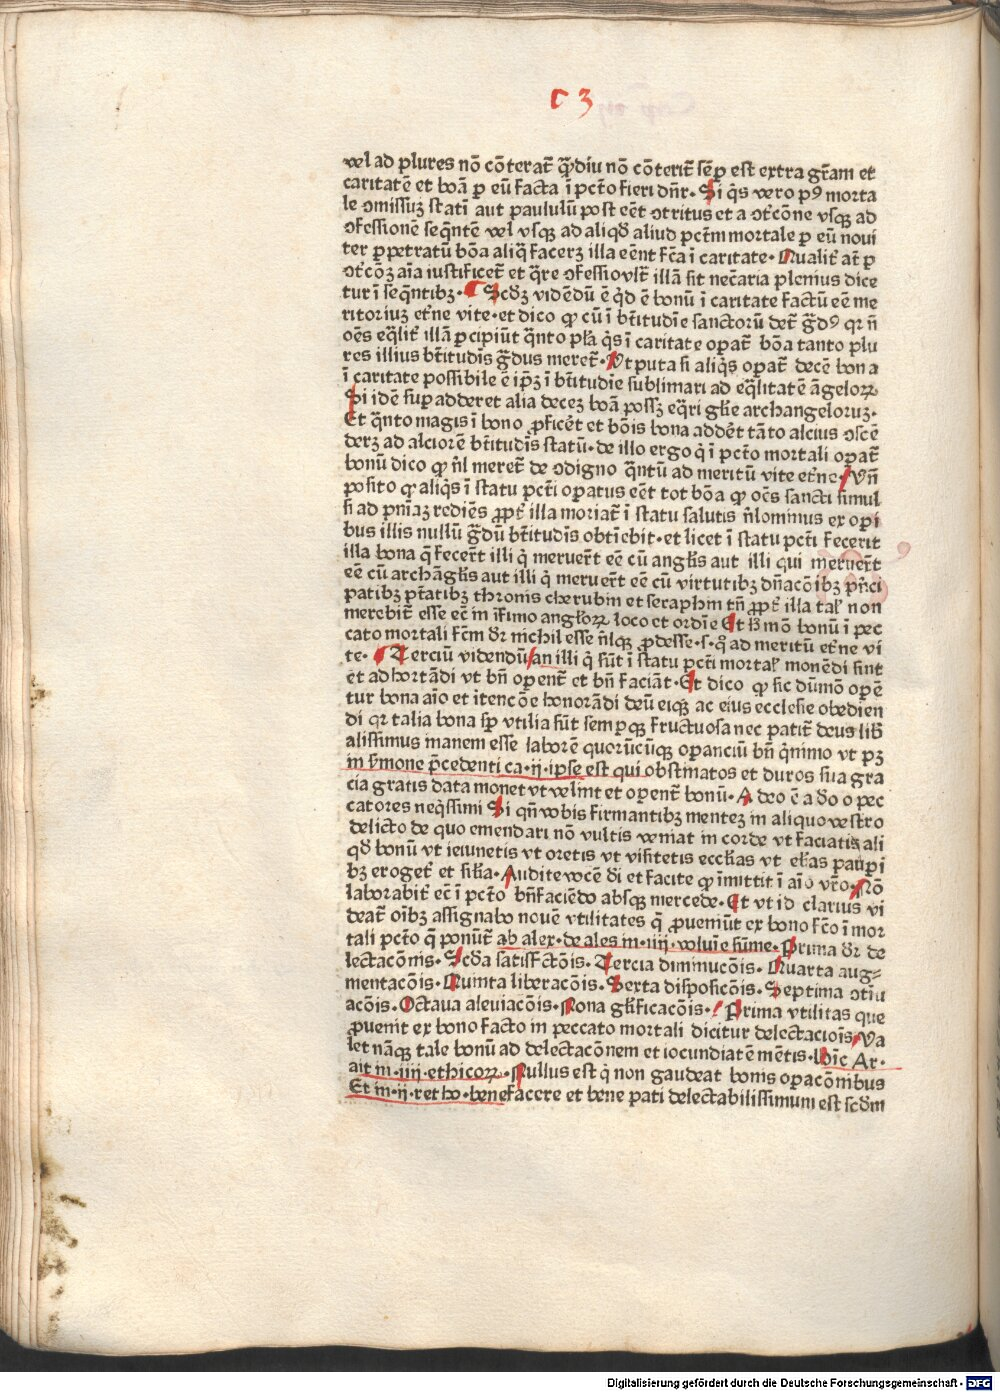 c 3
vel ad plures nō cōterat᷑ q̄̄diu nō cōterit᷑ sēp est extra gr̄am et
caritatē et boā p eū facta ī pctō fieri dn̄r. Si q̇s vero pꝰ morta
le ↄmissuꝫ statī aut paululū post eēt ↄtritus et a ↄt᷑cōne vsqꝫ ad
ↄfessionē seq̄ntē vel vsqꝫ ad aliqd̄ aliud pctm̄ mortale p eū noui
ter ppetratū bōa aliq̄ facerꝫ illa eēnt fc̄a ī caritate. Qualit᷑ at̄ p
ↄt᷑cōꝫ aīa iustificet᷑ et q̄re ↄfessiovl̄r illā sit nec̄aria plenius dice
tur ī seq̄ntibꝫ. Scd̄ꝫ vidēdū ē q̇d ē bonū ī caritate factū eē me
ritoriuꝫ et᷑ne vite. et dico ꝙ cū ī bt̄itudīe sanctorū det᷑ g̃dꝰ qr n̄
oēs eq̄lit᷑ illā pcipiūt q̄nto pl᷑a q̇s ī caritate opat᷑ bōa tanto plu
res illius bt̄itudīs g̃dus meret᷑. Vtputa si aliq̇s opat᷑ decē bona
ī caritate possibile ē ip̄ꝫ ī bt̄itudīe sublimari ad eq̄litatē āgeloꝝ
Si idē supadderet alia deceꝫ boā possꝫ eq̄ri gl̄ie archangeloruꝫ.
Et q̄nto magis ī bono ꝓficēt et bōis bona addēt tāto alcius ↄscē
derꝫ ad alciorē bt̄itudīs statū. de illo ergo q̇ ī pctō mortali opat᷑
bonū dico ꝙ n̄l meret᷑ de ↄdigno q̄ntū ad meritū vite et᷑ne. Vn̄
posito ꝙ aliq̇s ī statu pcti opatus eēt tot bōa ꝙ oēs sancti simul
si ad pn̄iaꝫ rediēs ꝓpt᷑ illa moriat᷑ ī statu salutis n̄lominus ex opi
bus illis nullū g̃dū bt̄itudīs obtiebit. et licet ī statu pcti fecerit
illa bona q̄ fecer̄t illi q̇ meruer̄t eē cū angl̄is aut illi qui meruer̄t
eē cū archāgl̄is aut illi q̇ meruer̄t eē cū virtutibꝫ dn̄acōibꝫ pn̄ci
patibꝫ pt̄atibꝫ thronis cherubin et seraphin tn̄ ꝓpt᷑ illa tal᷑ non
merebit᷑ esse ec̄ in īfimo angl̄oꝝ loco et ordīe Et h̄ mō bonū ī pec
cato mortali fc̄m dr̄ nichil esse n̄lqꝫ ꝓdesse. s. q̊ ad meritū et᷑ne vi
te. Terciū videndū an illi q̇ sūt ī statu pcti mortal᷑ monēdi sint
et adhortādi vt bn̄ opent᷑ et bn̄ faciāt. Et dico ꝙ sic dūmō opē
tur bona aīo et itencōe honorādi deū eiqꝫ ac eius ecclesie obedien
di qr talia bona sp̄ vtilia sūt sempqꝫ fructuosa nec patit᷑ deus lib̄
alissimus inanem esse laborē quorūcūqꝫ opanciū bn̄ q̇nimo vt pꝫ
in s̄mone p̄cedenti ca. ij. ipse est qui obstinatos et duros sua gra
cia gratis data monet vt velint et opent᷑ bonū. Adeo ē a do o pec
catores neq̇ssimi Si qn̄ vobis firmantibꝫ menteꝫ in aliquo vestro
delicto de quo emendari nō vultis veniat in corde vt faciatis ali
qd̄ bonū vt ieiunetis vt oretis vt visitetis eccl̄ias vt el̄ias paupi
bꝫ eroget᷑ et sil̄ia. Audite vocē di et facite ꝙ īmittit ī aīo vr̄o. Nō
laborabit᷑ ec̄ ī pctō bn̄faciēdo absqꝫ mercede. Et vt id clarius vi
deat᷑ oībꝫ assignabo nouē vtilitates q̄ ꝓueniūt ex bono fcō ī mor
tali pctō q̄ ponūt᷑ ab alex. de ales in. iiij. voluīe sūme. Prima dr̄ de
lectacōnis. Scd̄a satisfctōis. Tercia diminucōis. Quarta aug⸗
mentacōis. Quinta liberacōis. Sexta disposicōis. Septima ↄtīu
acōis. Octaua aleuiacōis. Nona gl̄ificacōis. Prima vtilitas que
ꝓuenit ex bono facto in peccato mortali dicitur delectaciois. Va
let nāqꝫ tale bonū ad delectacōnem et iocundiatē mētis. hīc Ar.
ait in. iiij. ethicoꝝ. Nullus est q̇ non gaudeat bonis opacōnibus
Et in. ij. retho. benefacere et bene pati delectabilissimum est scd̄m
Digitalisierung gefördert durch die Deutsche Forschungsgemeinschaft - DFG